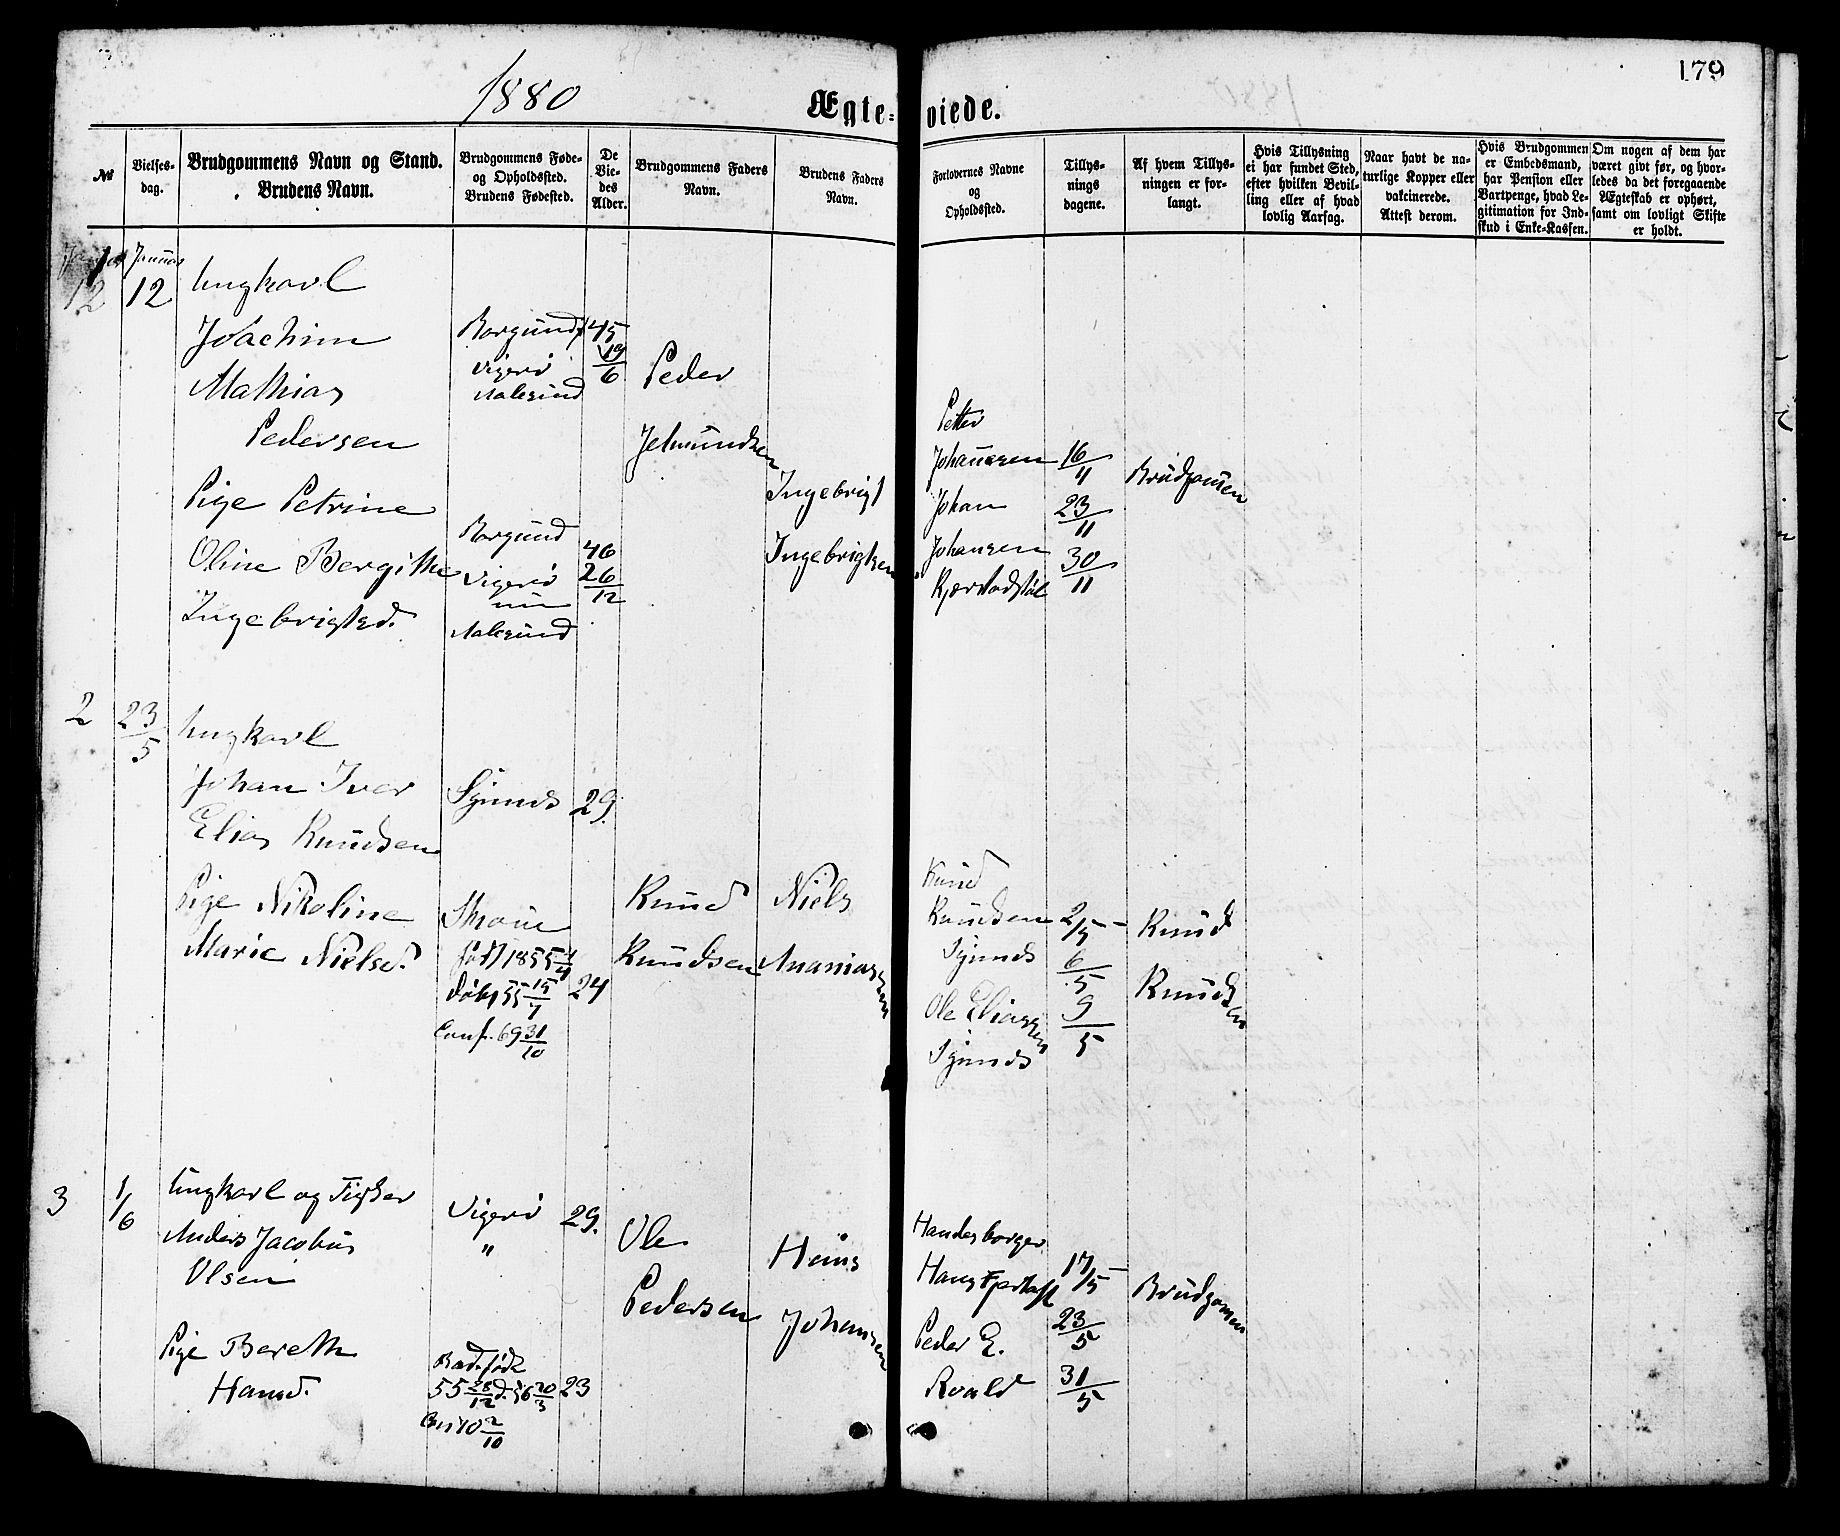 1880
179
Ægte-viede.
№
Vielses-
dag.
Brudgommens Navn og Stand.
Brudens Navn.
Brudgommens Føde-
og Opholdssted.
Brudens Fødested.
De
Vie-
des
Alder.
Brudgommens Faders
Navn.
Brudens Faders
Navn.
Forlovernes Navne
og
Opholdssted.
Tillys-
nings
dagene.
Af hvem Tillys-
ningen er for-
langt.
Hvis Tillysning
ei har fundet Sted,
efter hvilken Bevil-
ling eller af hvad
lovlig Aarsag.
Naar havt de na-
turlige Kopper eller
vakcinerede.
Attest derom.
Hvis Brudgommen
er Embedsmand,
har Pension eller
Vartpenge, hvad Le-
gitimation for Ind-
skud i Enke-Kassen.
Om nogen af dem har
været givt før, og hvor-
ledes da det foregaaende
Ægteskab er ophørt,
samt om lovligt Skifte
er holdt.
12
Ungkarl
Joachim
Mathias
Pedersen
Pige Petrine
Oline Bergithe
Ingebrigtsd.
Borgund
Vigerö
Aalesund
45
19/6
Borgund
Vigerö
Aalesund
46
26/12
Peder
Jetmundsen
Ingebrigt
Ingebrigtsen
Petter
Johansen
Johan
Johansen
16/11
23/11
30/11
Brudgomen
2
23/5
Ungkarl
Johan Iver
Elias Knudsen
Pige Nikoline
Marie Nielsd.
29.
född 1855
24
Conf. 69 31/10
Knud
Knudsen
Niels
Ananiassen
Knud
Knudsen
Ole Eliassen
2/5
6/5
9/5
Knud
Knudsen
3
1/6
Ungkarl og Fisker
Anders Jacobus
Olsen
Pige Bereth
Hansd.
Vigerö
"
29.
55 28/12 d. 56 20/3
23
Ole
Pedersen
Hans
Johansen
Handesborger
Hans
Peder E.
Roald
17/5
23/5
31/5
Brudgomen